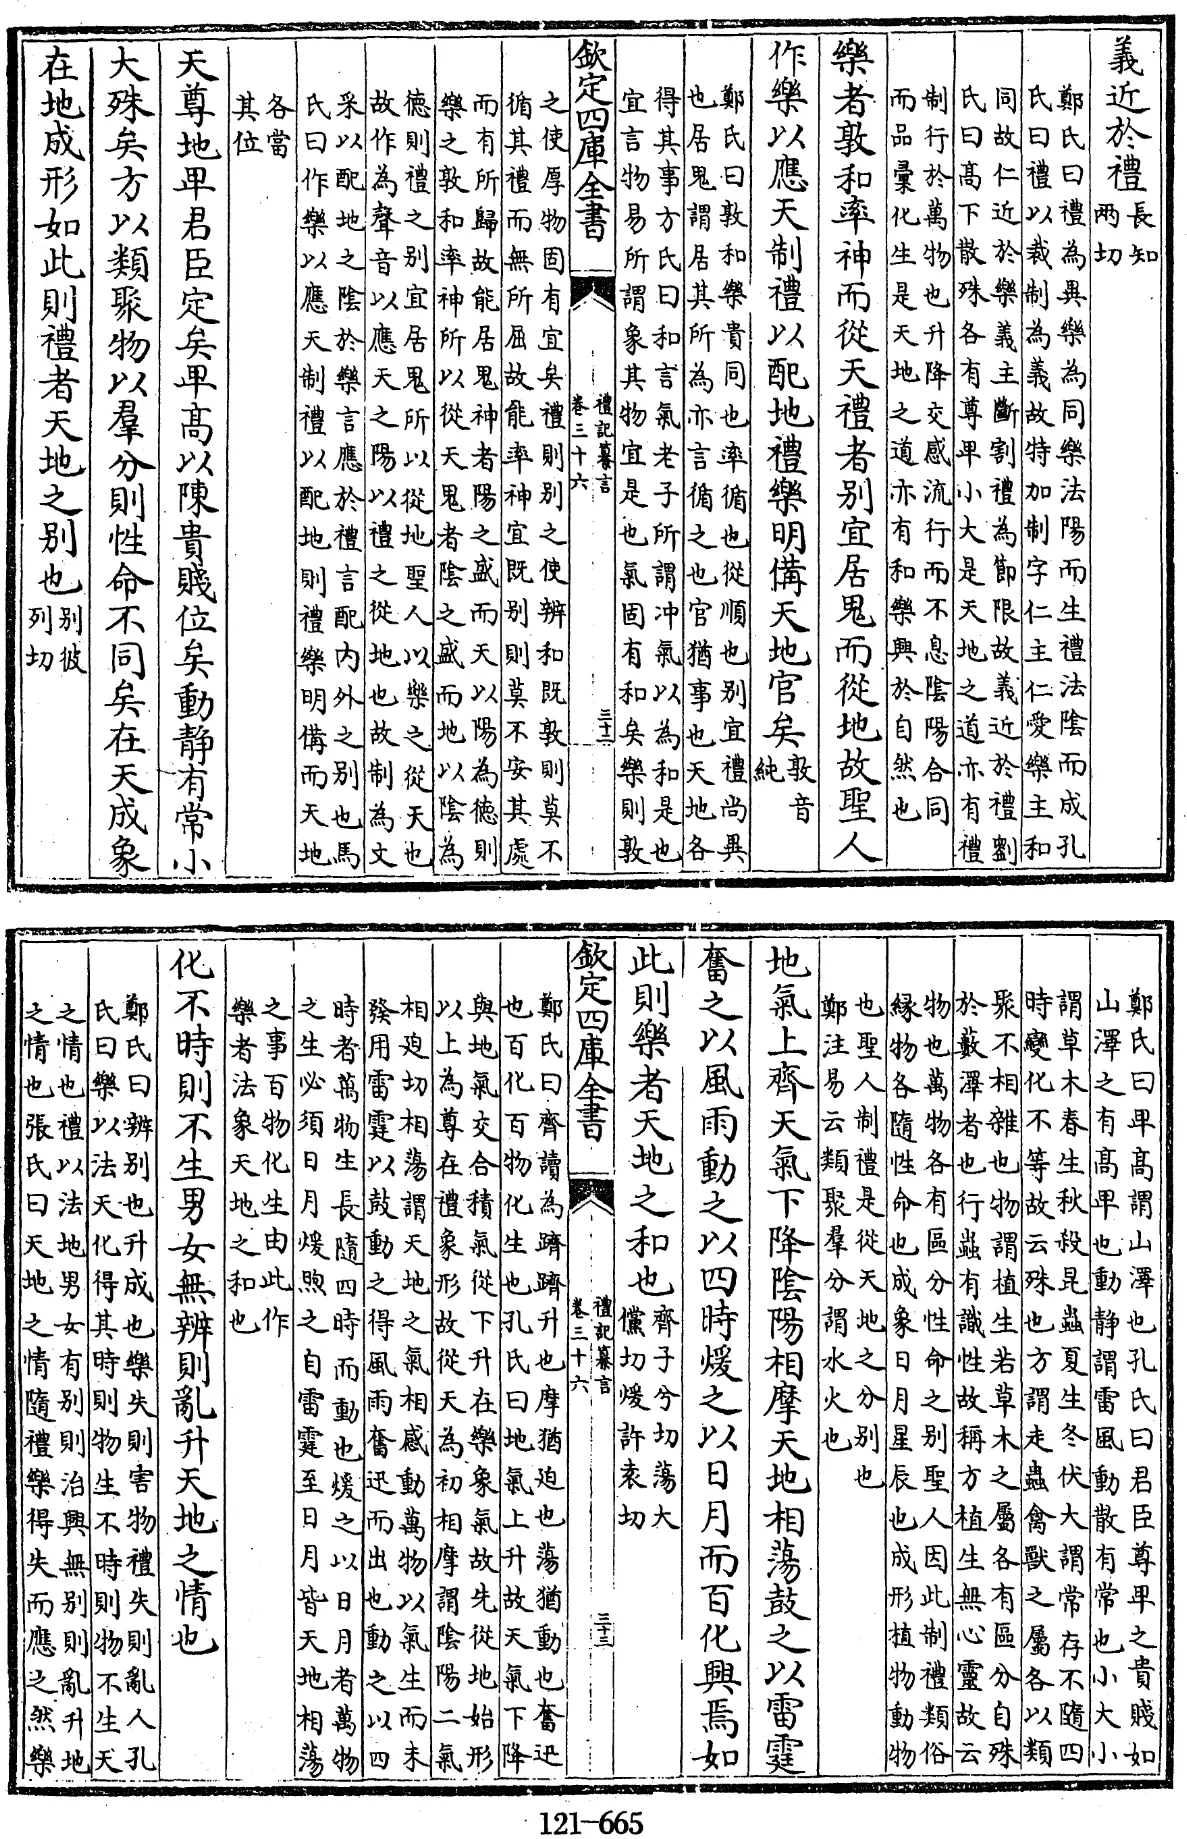 義近於禮長知
兩切
鄭氏曰禮為異樂為同樂法陽而生禮法陰而成孔
氏曰禮以裁制為義故特加制字仁主仁愛樂主和
同故仁近於樂義主斷割禮為節限故義近於禮劉
氏曰髙下散殊各有尊卑小大是天地之道亦有禮
制行於萬物也升降交感流行而不息陰陽合同
而品彚化生是天地之道亦有和樂興於自然也
樂者敦和率神而從天禮者别宜居鬼而從地故聖人
作樂以應天制禮以配地禮樂明備天地官矣敦音
純
鄭氏曰敦和樂貴同也率循也從順也别宜禮尚異
也居鬼謂居其所為亦言循之也官猶事也天地各
得其事方氏曰和言氣老子所謂冲氣以為和是也
宜言物易所謂象其物宜是也氣固有和矣樂則敦
欽定四庫全書
禮記纂言
卷三十六
三十二
之使厚物固有宜矣禮則别之使辨和既敦則莫不
循其禮而無所屈故能率神宜既别則莫不安其處
而有所歸故能居鬼神者陽之盛而天以陽為德則
樂之敦和率神所以從天鬼者陰之盛而地以陰為
德則禮之别宜居鬼所以從地聖人以樂之從天也
故作為聲音以應天之陽以禮之從地也故制為文
采以配地之陰於樂言應於禮言配内外之别也馬
氏曰作樂以應天制禮以配地則禮樂明備而天地
各當
其位
天尊地卑君臣定矣卑髙以陳貴賤位矣動靜有常小
大殊矣方以類聚物以羣分則性命不同矣在天成象
在地成形如此則禮者天地之别也别彼
列切
鄭氏曰卑髙謂山澤也孔氏曰君臣尊卑之貴賤如
山澤之有髙卑也動靜謂雷風動散有常也小大小
謂草木春生秋殺昆蟲夏生冬伏大謂常存不隨四
時變化不等故云殊也方謂走蟲禽獸之屬各以類
聚不相雜也物謂植生若草木之屬各有區分自殊
於藪澤者也行蟲有識性故稱方植生無心靈故云
物也萬物各有區分性命之别聖人因此制禮類俗
緣物各隨性命也成象日月星辰也成形植物動物
也聖人制禮是從天地之分别也
鄭注易云類聚羣分謂水火也
地氣上齊天氣下降陰陽相摩天地相蕩鼓之以雷霆
奮之以風雨動之以四時煖之以日月而百化興焉如
此則樂者天地之和也齊子兮切蕩大
儻切煖許袁切
欽定四庫全書
禮記纂言
卷三十六
三十三
鄭氏曰齊讀為躋躋升也摩猶迫也蕩猶動也奮迅
也百化百物化生也孔氏曰地氣上升故天氣下降
與地氣交合積氣從下升在樂象氣故先從地始形
以上為尊在禮象形故從天為初相摩謂陰陽二氣
相迫切相蕩謂天地之氣相感動萬物以氣生而未
發用雷霆以鼓動之得風雨奮迅而出也動之以四
時者萬物生長隨四時而動也煖之以日月者萬物
之生必須日月煖煦之自雷霆至日月皆天地相蕩
之事百物化生由此作
樂者法象天地之和也
化不時則不生男女無辨則亂升天地之情也
鄭氏曰辨别也升成也樂失則害物禮失則亂人孔
氏曰樂以法天化得其時則物生不時則物不生天
之情也禮以法地男女有别則治興無别則亂升地
之情也張氏曰天地之情隨禮樂得失而應之然樂
121-665